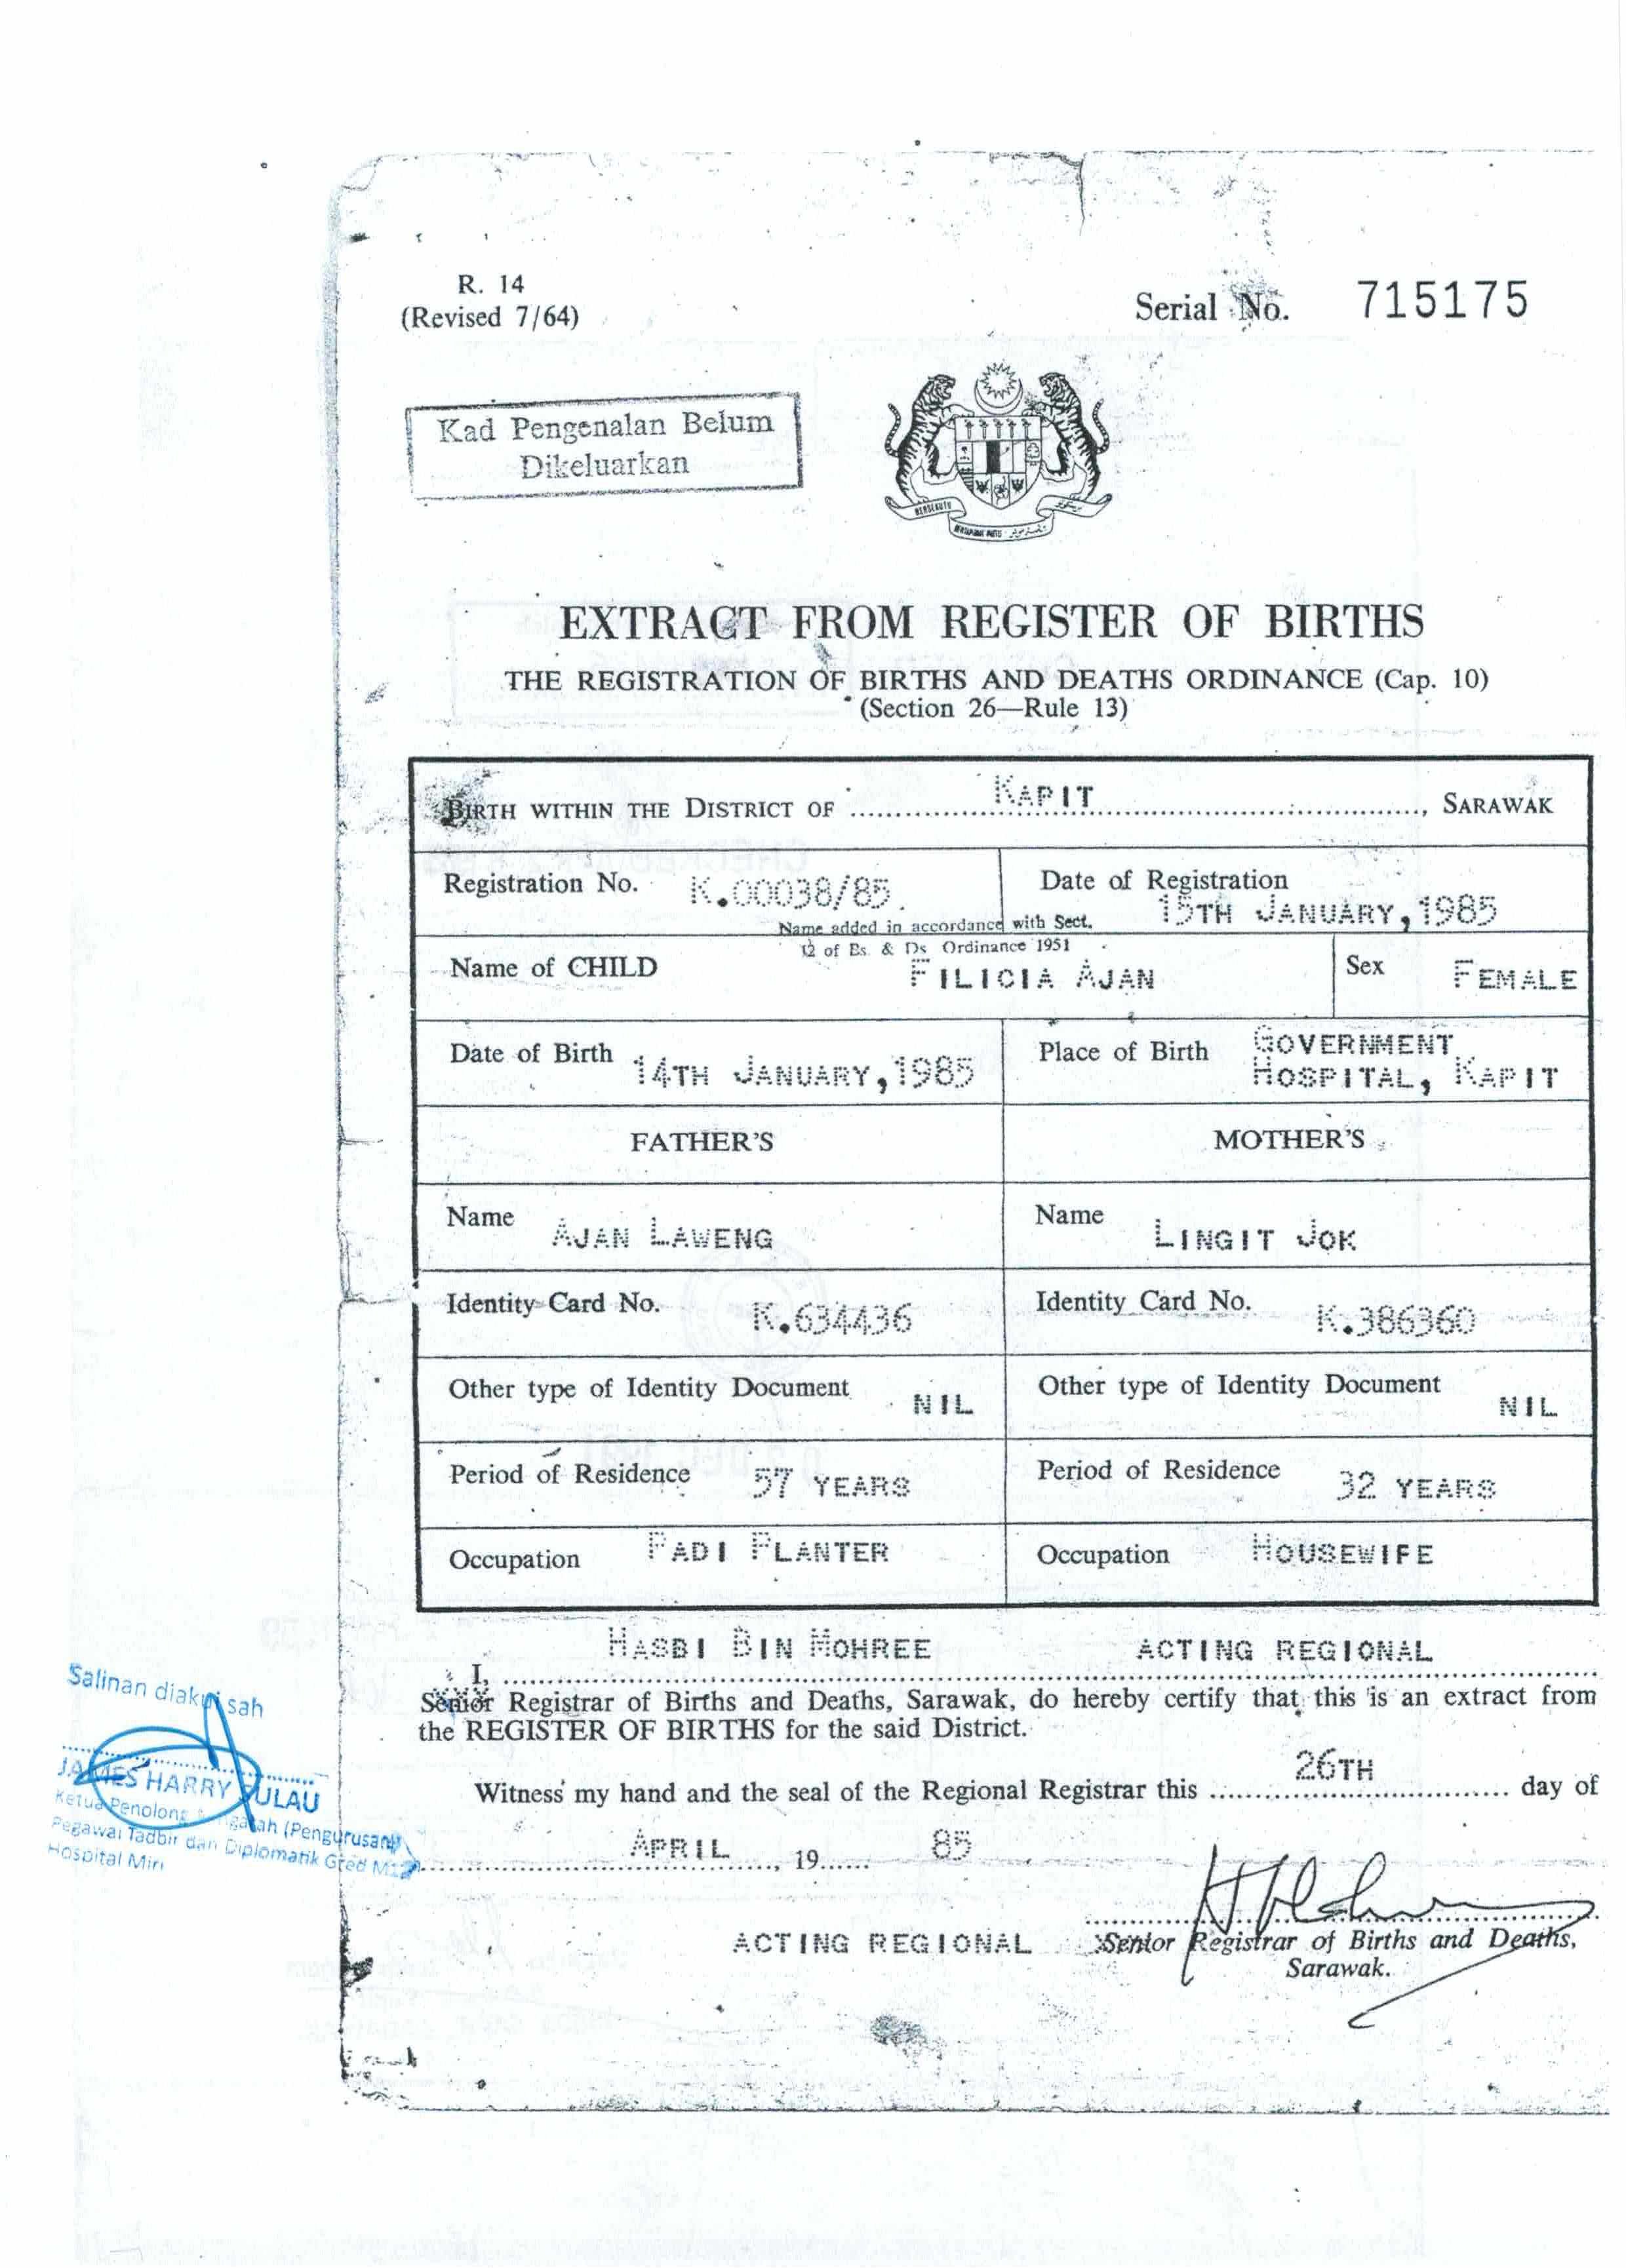 R. 14
(Revised 7/64)
Serial No. 715175
Kad Pengenalan Belum
Dikeluarkan
BERSEKUTU
EXTRACT FROM REGISTER OF BIRTHS
THE REGISTRATION OF BIRTHS AND DEATHS ORDINANCE (Cap. 10)
(Section 26—Rule 13)
BIRTH WITHIN THE DISTRICT OF KAPIT, SARAWAK
Registration No. K.00038/85.
Date of Registration
15TH JANUARY, 1985
Name added in accordance with Sect.
12 of Bs. & Ds Ordinance 1951
Name of CHILD FILICIA AJAN
Sex FEMALE
Date of Birth 14TH JANUARY, 1985
Place of Birth GOVERNMENT
HOSPITAL, KAPIT
FATHER'S MOTHER'S
Name AJAN LAWENG Name LINGIT JOK
Identity Card No. K.634436 Identity Card No. K.386360
Other type of Identity Document NIL Other type of Identity Document NIL
Period of Residence 57 YEARS Period of Residence 32 YEARS
Occupation PADI PLANTER Occupation HOUSEWIFE
HASBI BIN MOHREE ACTING REGIONAL
I, ........
Senior Registrar of Births and Deaths, Sarawak, do hereby certify that this is an extract from
the REGISTER OF BIRTHS for the said District.
Witness my hand and the seal of the Regional Registrar this 26TH day of
APRIL, 19 85
ACTING REGIONAL Senior Registrar of Births and Deaths,
Sarawak.
Salinan diakui sah
JAMES HARRY SULAU
Ketua Penolong Pengarah (Pengurusan)
Pegawai Tadbir dan Diplomatik Gred M12
Hospital Miri